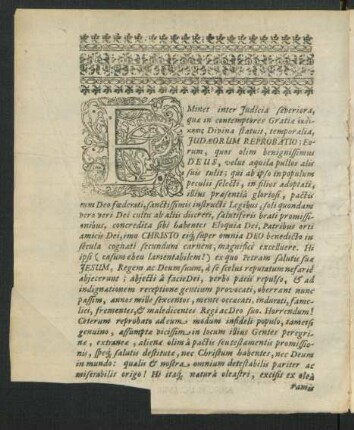 EMinet inter Judicia severiora,
quæ in contemptores Gratiæ indi-
vinæ Divina statuit, temporalia,
JUDÆORUM REPROBATIO: Eo-
rum, quos olim benignissimus
DEUS, velut aquila pullos alis
suis tulit; qui ab ipso in populum
peculii selecti, in filios adoptati,
illius præsentiâ gloriosi, pactis
cum Deo fœderati, sanctissimis instructi Legibus, soli quondam
vero veri Dei cultu ab aliis discreti, salutiferis beati promissi-
onibus, concredita sibi habentes Eloquia Dei, Patribus orti
amicis Dei, imo CHRISTO eiq; super omnia DEO benedicto in
secula cognati secundum carnem, magnificè excelluere. Hi
ipsi (casum ohea lamentabilem!) ex quo Petram salutis suæ
JESUM, Regem ac Deum suum, à se scelus reputatum nefariè
abjecerunt: abjecti à facie Dei, verbo pacis repulso, & ad
indignationem receptione gentium provocati, oberrant nunc
passim, annos mille sexcentos, mente occæcati, indurati, fame-
lici, frementes, & maledicentes Regi ac Deo suo. Horrendum!
Ceterum reprobato ad eum modum infideli populo, tametsi
genuino, assumpta vicissim in locum illius Genter peregri-
næ, extraneæ, alienæ olim à pactis seu testamentis promissio-
nis, speq; salutis destitutæ, nec Christum habentes, nec Deum
in mundo: qualis & nostra omnium detestabilis pariter ac
miserabilis origo! Hi itaq; naturâ oleastri, excisis ex oleâ
ramis